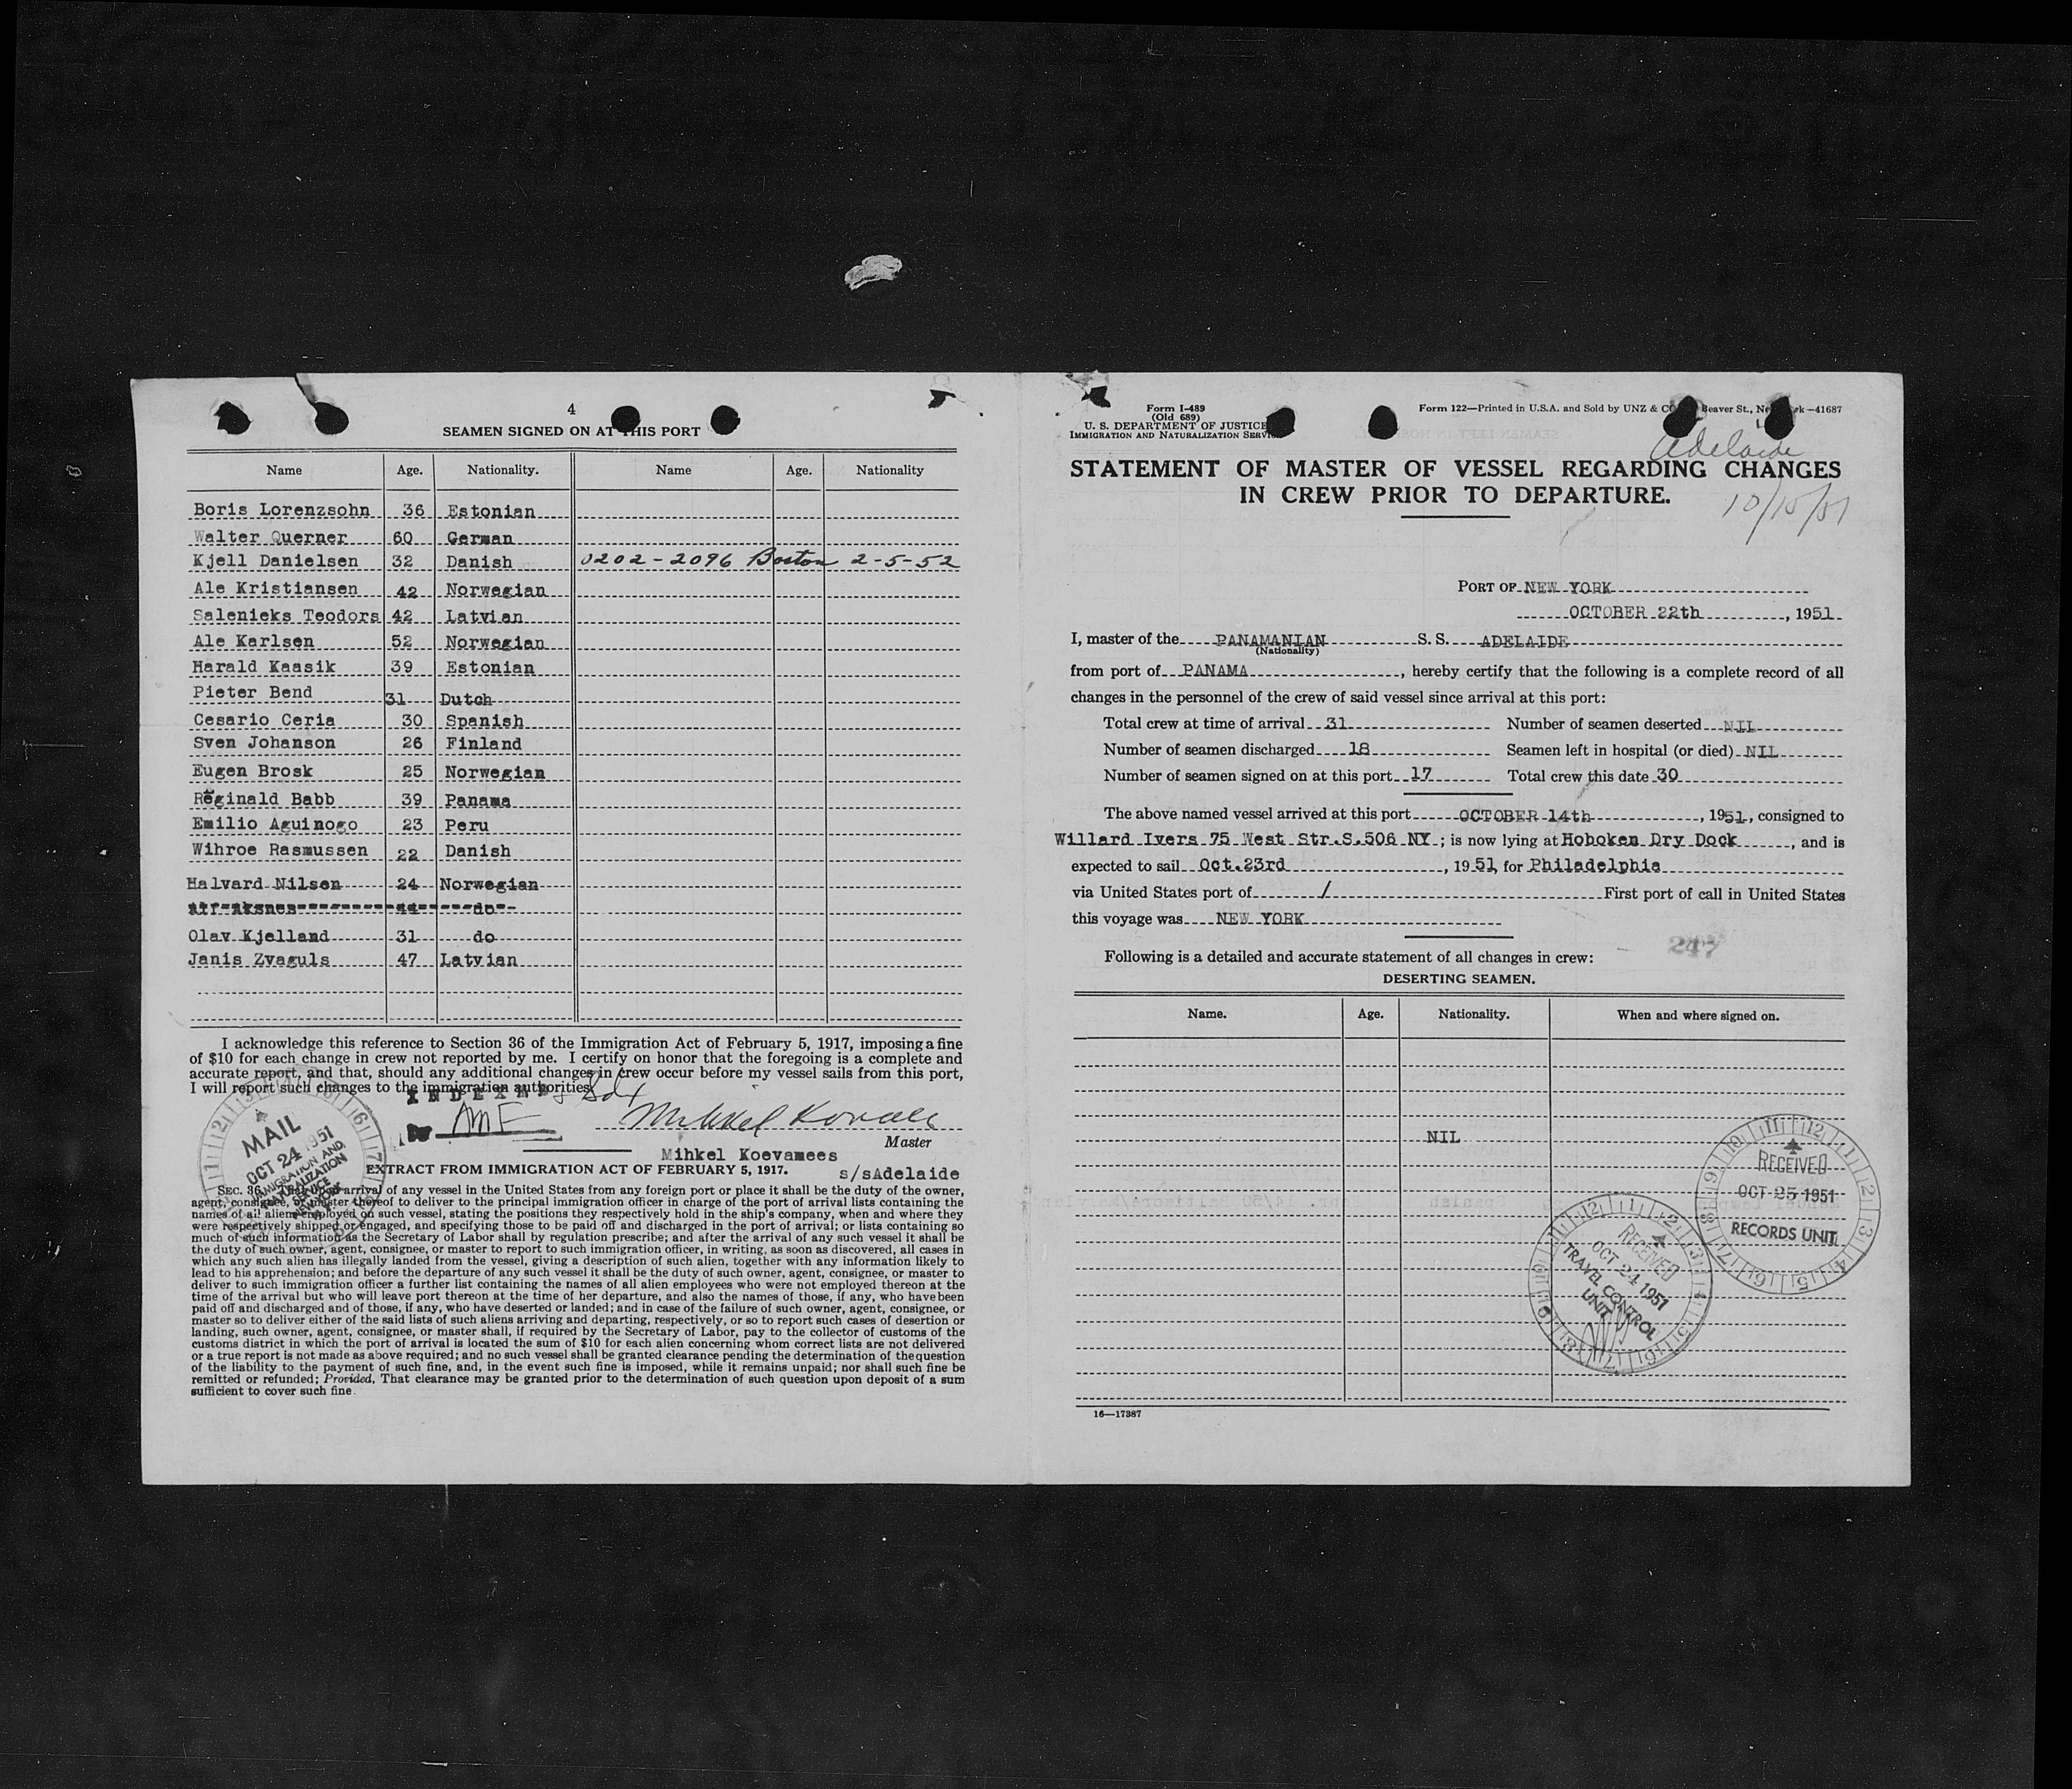 4
SEAMEN SIGNED ON AT THIS PORT
Name Age. Nationality. Name Age. Nationality
Boris Lorenzsohn 36 Estonian
Walter Querner 60 German
Kjell Danielsen 32 Danish 0202-2096 Boston 2-5-52
Ale Kristiansen 42 Norwegian
Salenieks Teodors 42 Latvian
Ale Karlsen 52 Norwegian
Harald Kaasik 39 Estonian
Pieter Bend 31 Dutch
Cesario Ceria 30 Spanish
Sven Johanson 26 Finland
Eugen Brosk 25 Norwegian
Reginald Babb 39 Panama
Emilio Aguinogo 23 Peru
Wihroe Rasmussen 22 Danish
Halvard Nilsen 24 Norwegian
do
Olav Kjelland 31 do
Janis Zvaguls 47 Latvian
I acknowledge this reference to Section 36 of the Immigration Act of February 5, 1917, imposing a fine
of $10 for each change in crew not reported by me. I certify on honor that the foregoing is a complete and
accurate report, and that, should any additional changes in crew occur before my vessel sails from this port,
I will report such changes to the immigration authorities.
INDEXED
Master
Mihkel Koevamees
EXTRACT FROM IMMIGRATION ACT OF FEBRUARY 5, 1917. s/sAdelaide
MAIL
OCT 24 1951
IMMIGRATION AND
NATURALIZATION
SERVICE
NEW YORK
SEC. 36. arrival of any vessel in the United States from any foreign port or place it shall be the duty of the owner,
agent, consignee, or master thereof to deliver to the principal immigration officer in charge of the port of arrival lists containing the
names of all aliens employed on such vessel, stating the positions they respectively hold in the ship's company, when and where they
were respectively shipped or engaged, and specifying those to be paid off and discharged in the port of arrival; or lists containing so
much of such information as the Secretary of Labor shall by regulation prescribe; and after the arrival of any such vessel it shall be
the duty of such owner, agent, consignee, or master to report to such immigration officer, in writing, as soon as discovered, all cases in
which any such alien has illegally landed from the vessel, giving a description of such alien, together with any information likely to
lead to his apprehension; and before the departure of any such vessel it shall be the duty of such owner, agent, consignee, or master to
deliver to such immigration officer a further list containing the names of all alien employees who were not employed thereon at the
time of the arrival but who will leave port thereon at the time of her departure, and also the names of those, if any, who have been
paid off and discharged and of those, if any, who have deserted or landed; and in case of the failure of such owner, agent, consignee, or
master so to deliver either of the said lists of such aliens arriving and departing, respectively, or so to report such cases of desertion or
landing, such owner, agent, consignee, or master shall, if required by the Secretary of Labor, pay to the collector of customs of the
customs district in which the port of arrival is located the sum of $10 for each alien concerning whom correct lists are not delivered
or a true report is not made as above required; and no such vessel shall be granted clearance pending the determination of the question
of the liability to the payment of such fine, and, in the event such fine is imposed, while it remains unpaid; nor shall such fine be
remitted or refunded; Provided, That clearance may be granted prior to the determination of such question upon deposit of a sum
sufficient to cover such fine.
Form I-489
(Old 689)
U. S. DEPARTMENT OF JUSTICE
IMMIGRATION AND NATURALIZATION SERVICE
Form 122—Printed in U.S.A. and Sold by UNZ & CO. Beaver St., New York—41687
Adelaide
STATEMENT OF MASTER OF VESSEL REGARDING CHANGES
IN CREW PRIOR TO DEPARTURE.
10/15/51
PORT OF NEW YORK
OCTOBER 22th, 1951
I, master of the PANAMANIAN S. S. ADELAIDE
(Nationality)
from port of PANAMA, hereby certify that the following is a complete record of all
changes in the personnel of the crew of said vessel since arrival at this port:
Total crew at time of arrival 31 Number of seamen deserted NIL
Number of seamen discharged 18 Seamen left in hospital (or died) NIL
Number of seamen signed on at this port 17 Total crew this date 30
The above named vessel arrived at this port OCTOBER 14th, 1951, consigned to
Willard Ivers 75 West Str.S.506 NY; is now lying at Hoboken Dry Dock, and is
expected to sail Oct.23rd, 1951, for Philadelphia
via United States port of / First port of call in United States
this voyage was NEW YORK
247
Following is a detailed and accurate statement of all changes in crew:
DESERTING SEAMEN.
Name. Age. Nationality. When and where signed on.
NIL
RECEIVED
OCT 25 1951
RECORDS UNIT
RECEIVED
OCT 24 1951
TRAVEL CONTROL
UNIT
16—17387